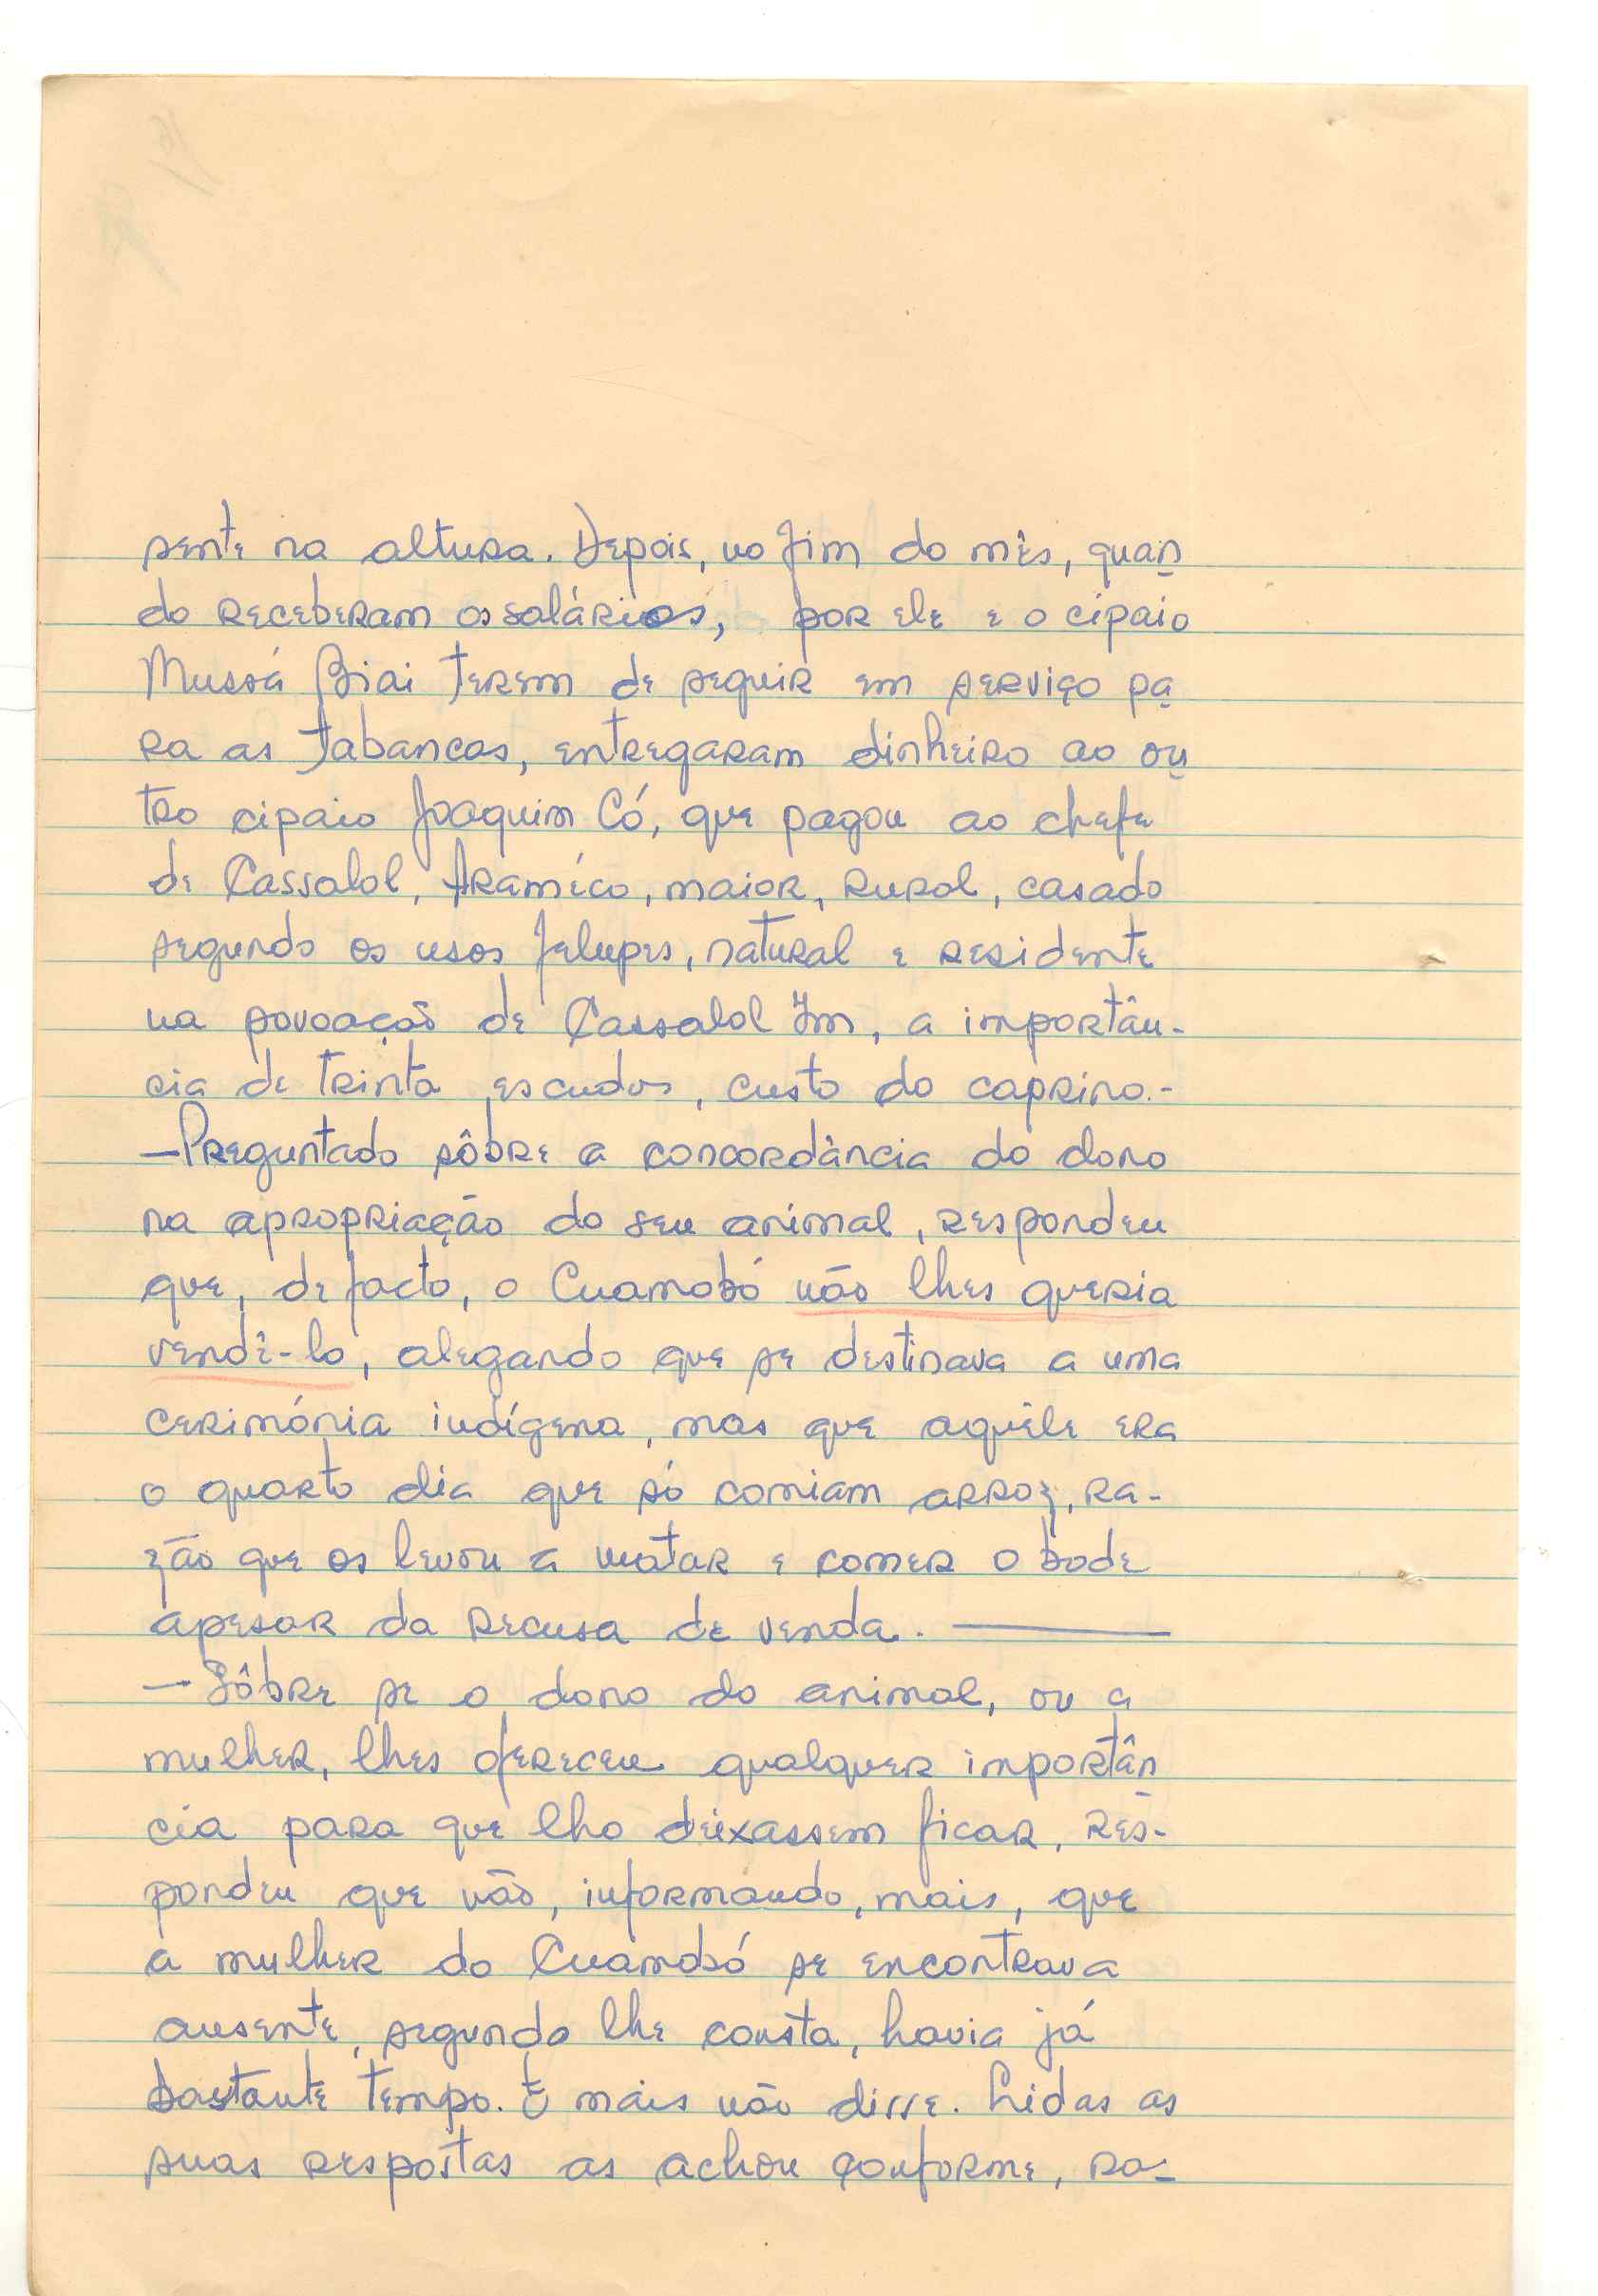 sente na altura. Depois, no fim do mês, quan
do receberam os salários, por ele e o cipaio
Mussá Biai terem de seguir em serviço pa
ra as tabancas, entregaram dinheiro ao ou
tro cipaio Joaquim Có, que pagou ao chefe
de Cassalol, Araméco, maior, rural, casado
segundo os usos felupes, natural e residente
na povoação de Cassalol Im, a importân-
cia de trinta escudos, custo do caprino.-
—Preguntado sôbre a concordância do dono
na apropriação do seu animal, respondeu
que, de facto, o Cuambó não lhes queria
vendê-lo, alegando que se destinava a uma
cerimónia indígena, mas que aquêle era
o quarto dia que só comiam arroz, ra-
zão que os levou a matar e comer o bode
apesar da recusa de venda. ———
—Sôbre se o dono do animal, ou a
mulher, lhes ofereceu qualquer importân
cia para que lho deixassem ficar, res-
pondeu que não, informando, mais, que
a mulher do Cuambó se encontrava
ausente, segundo lhe consta, havia já
bastante tempo. E mais não disse. Lidas as
suas respostas as achou conforme, ra-